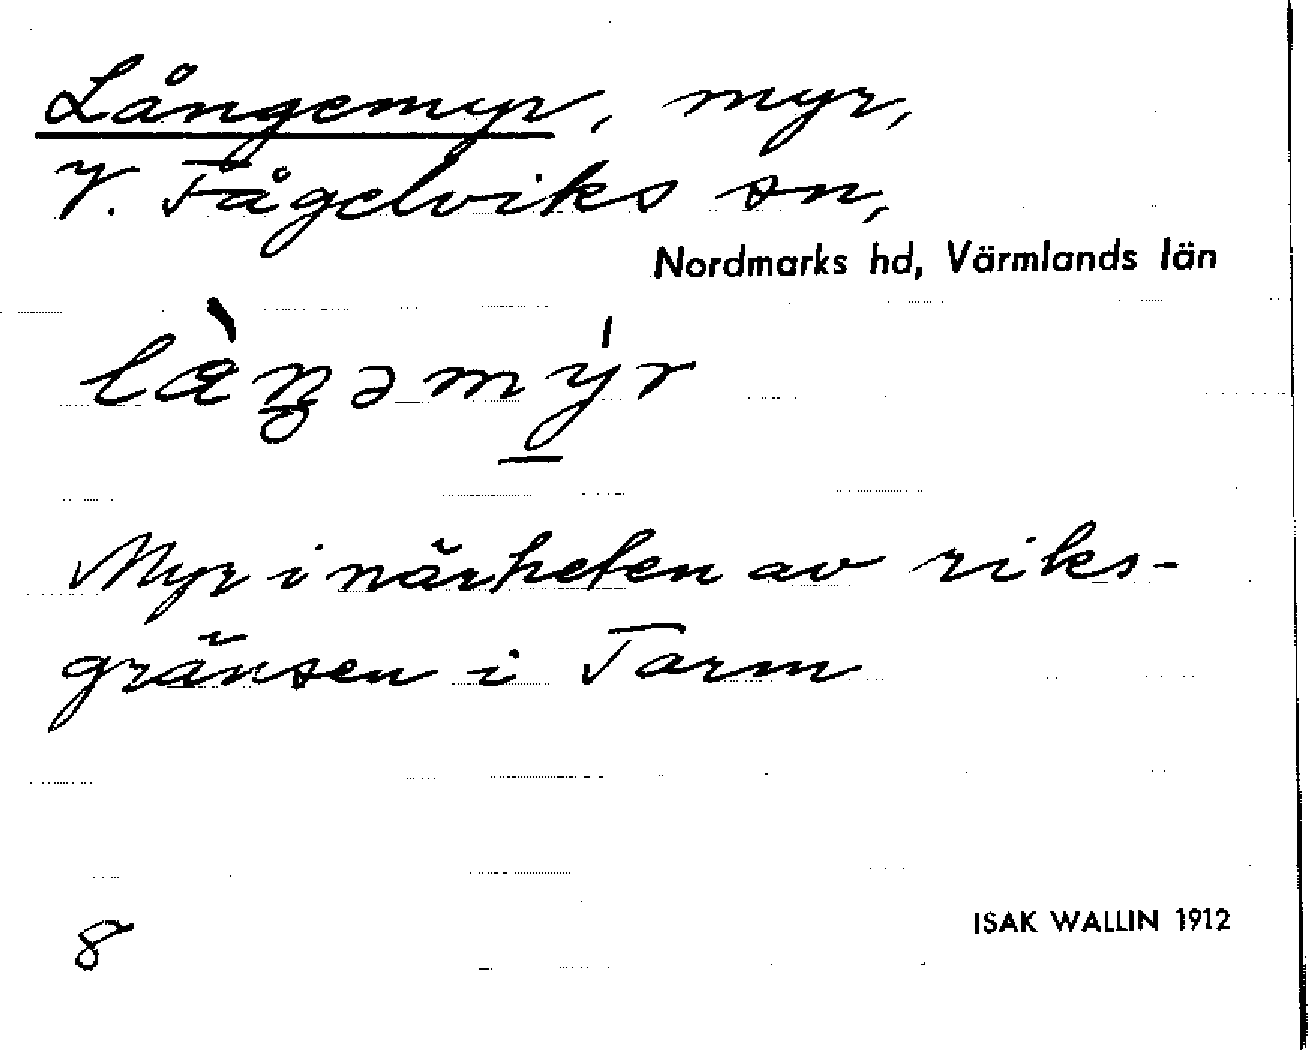 Långemyr, myr,
V. Fågelviks sn,
Nordmarks hd, Värmlands län
læ̀ŋəmýr
Myr i närheten av riks-
gränsen i Tarm
8
ISAK WALLIN 1912